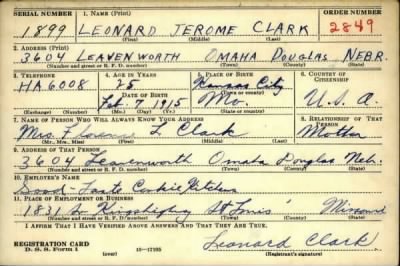 SERIAL NUMBER 1. NAME (Print) ORDER NUMBER
1899 LEONARD JEROME CLARK 2849
(First) (Middle) (Last)
2. ADDRESS (Print)
3604 LEAVENWORTH OMAHA DOUGLAS NEBR.
(Number and street or R. F. D. number) (Town) (County) (State)
3. TELEPHONE 4. AGE IN YEARS 5. PLACE OF BIRTH 6. COUNTRY OF CITIZENSHIP
HA 6008 25 Kansas City
DATE OF BIRTH (Town or county)
Feb. 7, 1915 Mo. U.S.A.
(Exchange) (Number) (Mo.) (Day) (Yr.) (State or country)
7. NAME OF PERSON WHO WILL ALWAYS KNOW YOUR ADDRESS 8. RELATIONSHIP OF THAT PERSON
Mrs. L Clark Mother
(Mr., Mrs., Miss) (First) (Middle) (Last)
9. ADDRESS OF THAT PERSON
3604 Leavenworth Omaha Douglas Neb.
(Number and street or R. F. D. number) (Town) (County) (State)
10. EMPLOYER'S NAME
Good-Taste Cookie Kitchens
11. PLACE OF EMPLOYMENT OR BUSINESS
1831 Kingshighway St Louis Missouri
(Number and street or R. F. D. number) (Town) (County) (State)
I AFFIRM THAT I HAVE VERIFIED ABOVE ANSWERS AND THAT THEY ARE TRUE.
REGISTRATION CARD
D. S. S. Form 1 (over) 16—17105 Leonard Clark
(Registrant's signature)